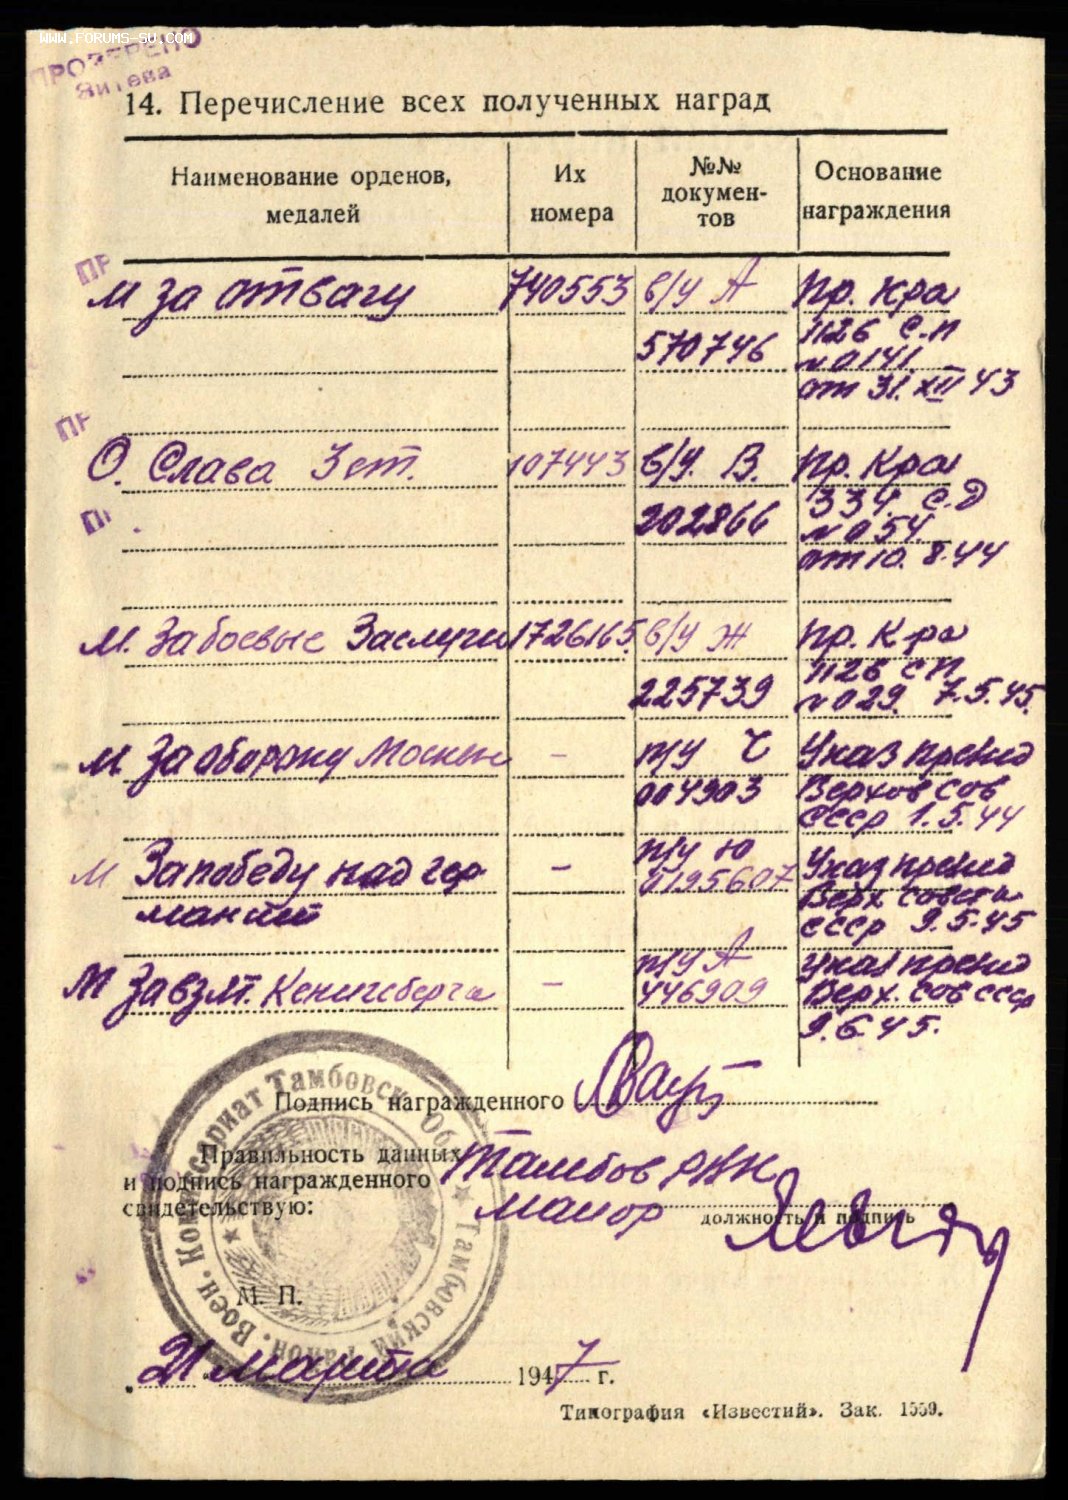 WWW.FORUMS-SU.COM
ПРОВЕРЕНО
14. Перечисление всех полученных наград
Наименование орденов, медалей
Их номера
№№ докумен-тов
Основание награждения
ПР
М За отвагу 740553 в/у А Пр. К-ра
570746 1126 С.П
№ 0141
от 31. XII 43
ПР
О. Слава 3 ст. 107443 в/у. В. Пр. К-ра
202866 334 С.Д
№ 054
от 10. 8. 44
М. За боевые Заслуги 1726165 в/у Ж Пр. К-ра
225739 1126 СП
№ 029. 7.5.45.
М За оборону Москвы – т/у Ч Указ презид
004903 Верхов Сов
СССР 1.5.44
М За победу над гер – т/у Ю Указ презид
0195607 Верх. совета
манией СССР 9.5.45
М За взят. Кенигсберга – т/у А Указ презид
446909 Верх. Сов СССР
9.6.45.
Подпись награжденного
Правильность данных и подпись награжденного свидетельствую:
Тамбов РВК
майор
должность и подпись
Воен. Комиссариат Тамбовск. Обл. ★ Тамбовский Район. ★
М. П.
„21“ марта 1947 г.
Типография «Известий». Зак. 1559.